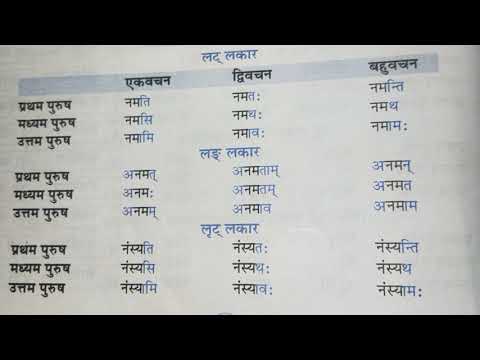 लट् लकार
एकवचन द्विवचन बहुवचन
प्रथम पुरुष नमति नमतः नमन्ति
मध्यम पुरुष नमसि नमथः नमथ
उत्तम पुरुष नमामि नमावः नमामः
लङ् लकार
प्रथम पुरुष अनमत् अनमताम् अनमन्
मध्यम पुरुष अनमः अनमतम् अनमत
उत्तम पुरुष अनमम् अनमाव अनमाम
लृट् लकार
प्रथम पुरुष नंस्यति नंस्यतः नंस्यन्ति
मध्यम पुरुष नंस्यसि नंस्यथः नंस्यथ
उत्तम पुरुष नंस्यामि नंस्यावः नंस्यामः